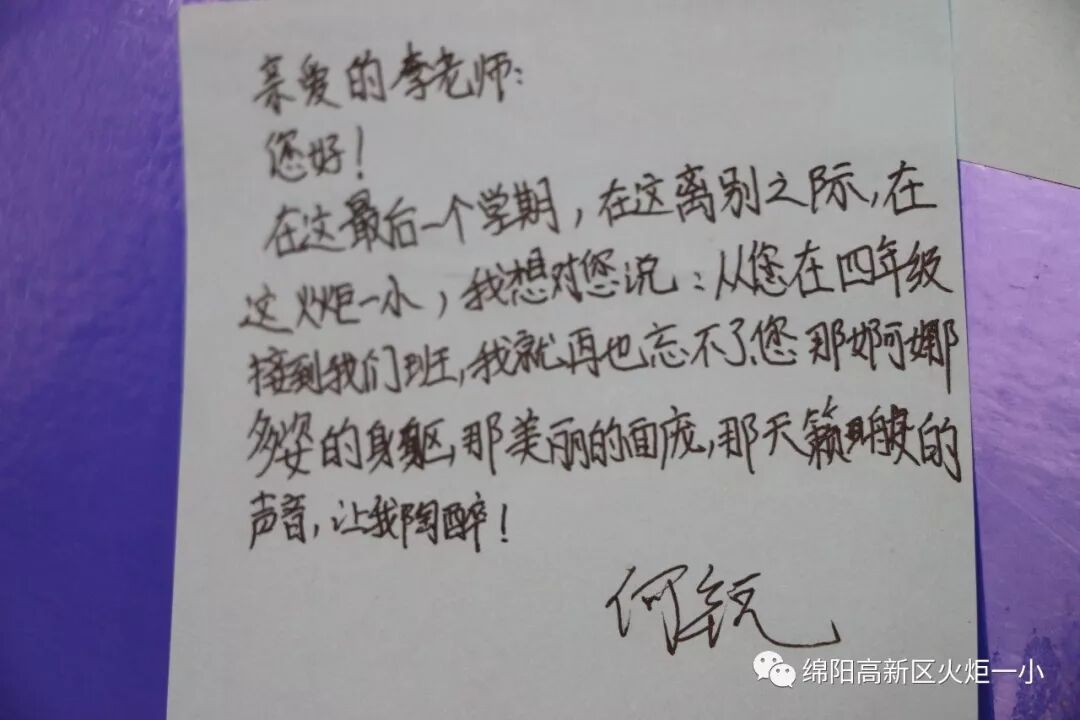 亲爱的李老师:
您好!
在这最后一个学期,在这离别之际,在
这火炬一小,我想对您说:从您在四年级
接到我们班,我就再也忘不了您那婀娜
多姿的身躯,那美丽的面庞,那天籁般的
声音,让我陶醉!
何锐
绵阳高新区火炬一小